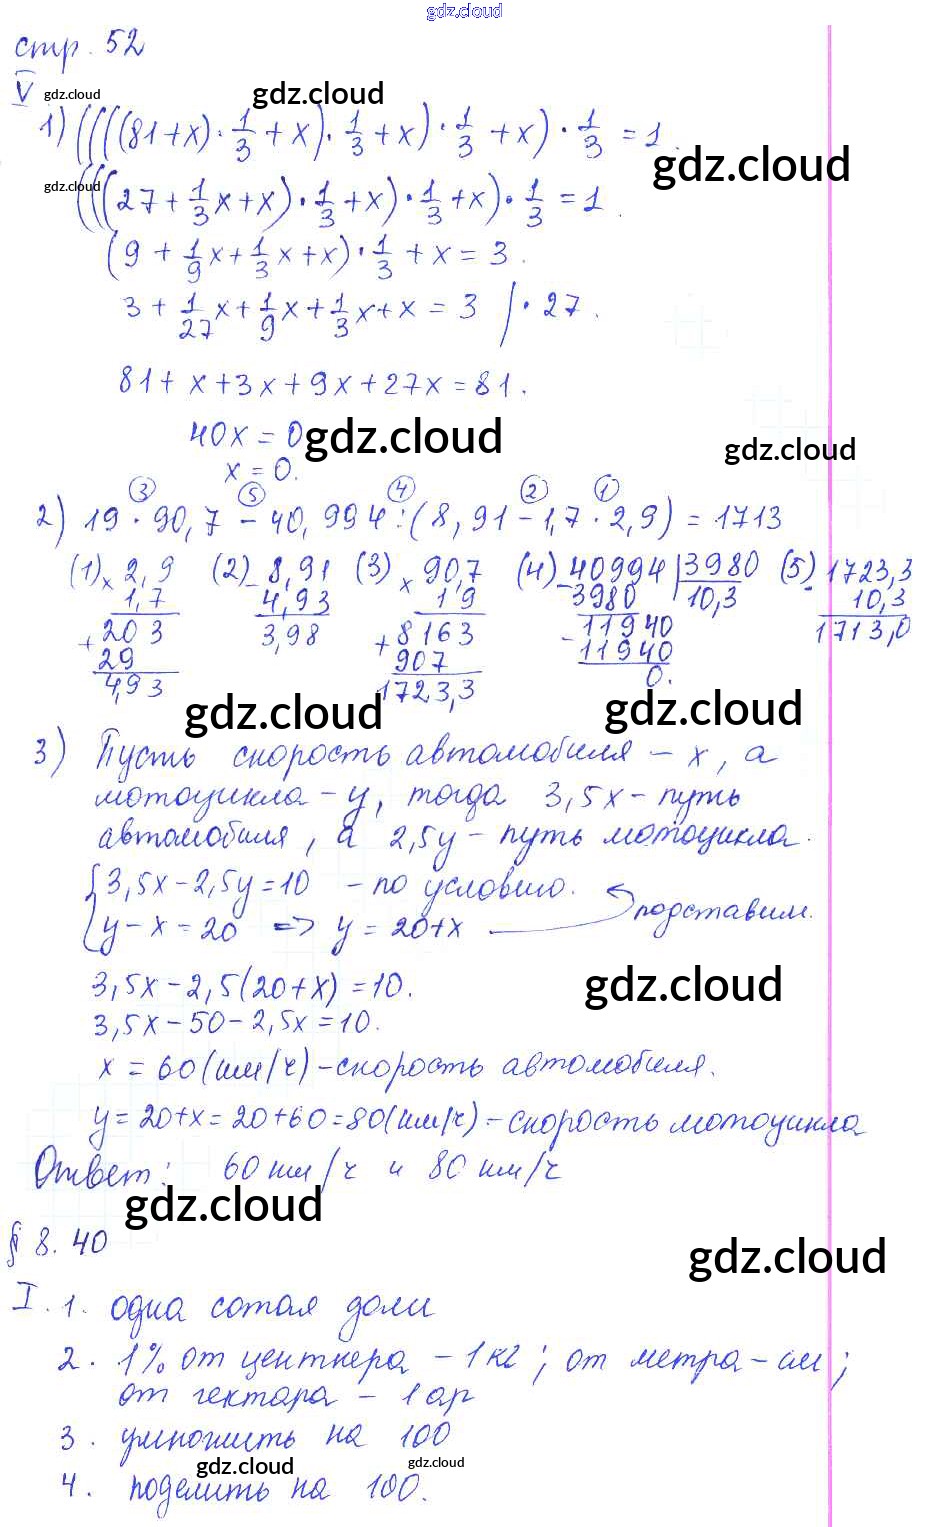 gdz.cloud
стр. 52
V gdz.cloud gdz.cloud
1) ((((81+x)·1/3+x)·1/3+x)·1/3+x)·1/3=1.
gdz.cloud gdz.cloud
(((27+1/3x+x)·1/3+x)·1/3+x)·1/3=1.
(9+1/9x+1/3x+x)·1/3+x=3.
3+1/27x+1/9x+1/3x+x=3 |·27.
81+x+3x+9x+27x=81.
40x=0 gdz.cloud gdz.cloud
x=0.
③ ⑤ ④ ② ①
2) 19·90,7-40,994:(8,91-1,7·2,9)=1713
(1) × 2,9 (2) - 8,91 (3) × 90,7 (4) - 40994 | 3980 (5) - 1723,3
1,7 4,93 19 3980 10,3 10,3
+ 203 3,98 + 8163 - 11940 1713,0
29 907 11940
4,93 1723,3 0.
gdz.cloud gdz.cloud
3) Пусть скорость автомобиля - x, а
мотоцикла - y, тогда 3,5x - путь
автомобиля, а 2,5y - путь мотоцикла.
{3,5x-2,5y=10 - по условию.
y-x=20 => y=20+x подставим.
3,5x-2,5(20+x)=10. gdz.cloud
3,5x-50-2,5x=10.
x=60(км/ч)-скорость автомобиля.
y=20+x=20+60=80(км/ч)-скорость мотоцикла
Ответ: 60 км/ч и 80 км/ч
gdz.cloud
§ 8. 40
gdz.cloud
I. 1. одна сотая доли
2. 1% от центнера - 1кг; от метра - см;
от гектара - 1 ар
3. умножить на 100
gdz.cloud gdz.cloud
4. поделить на 100.